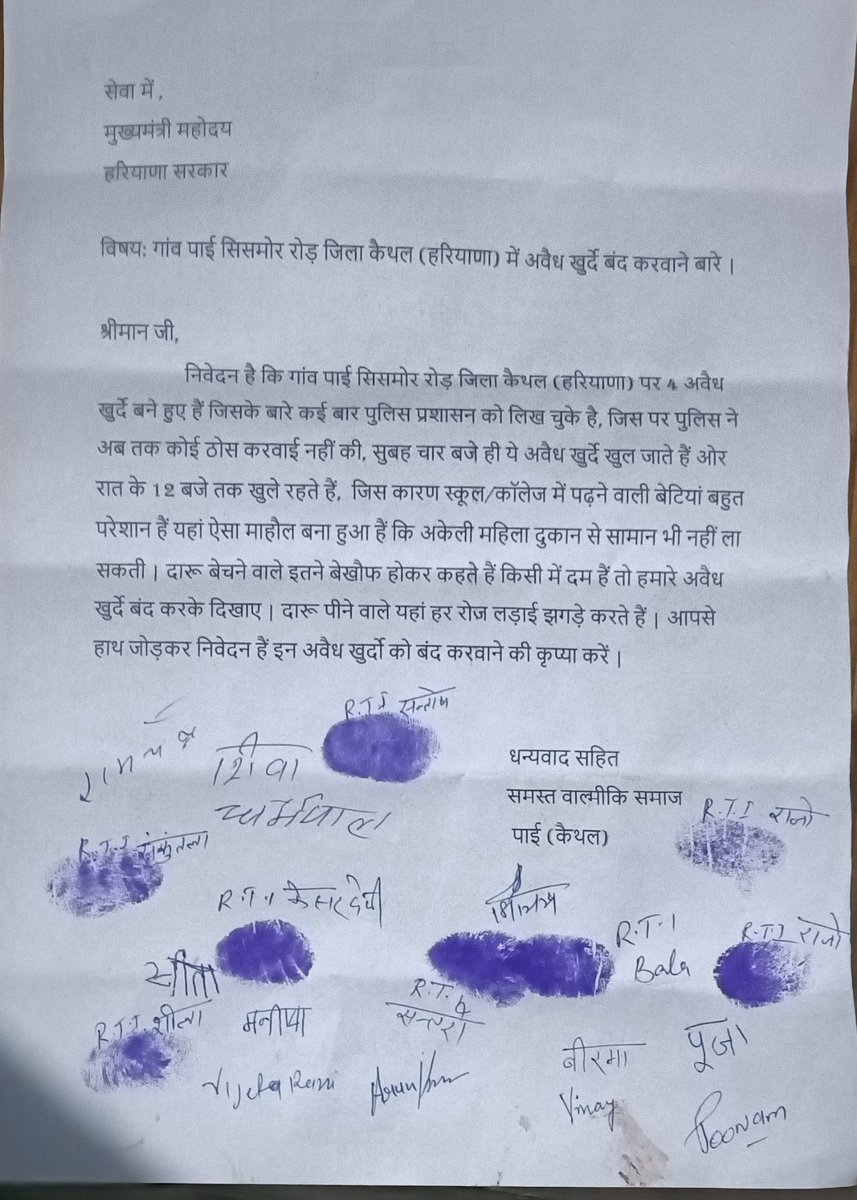 सेवा में ,
मुख्यमंत्री महोदय
हरियाणा सरकार
विषय: गांव पाई सिसमोर रोड़ जिला कैथल (हरियाणा) में अवैध खुर्दे बंद करवाने बारे |
श्रीमान जी,
निवेदन है कि गांव पाई सिसमोर रोड़ जिला कैथल (हरियाणा) पर 4 अवैध
खुर्दे बने हुए हैं जिसके बारे कई बार पुलिस प्रशासन को लिख चुके है, जिस पर पुलिस ने
अब तक कोई ठोस करवाई नहीं की, सुबह चार बजे ही ये अवैध खुर्दे खुल जाते हैं ओर
रात के 12 बजे तक खुले रहते हैं, जिस कारण स्कूल/कॉलेज में पढ़ने वाली बेटियां बहुत
परेशान हैं यहां ऐसा माहौल बना हुआ हैं कि अकेली महिला दुकान से सामान भी नहीं ला
सकती | दारू बेचने वाले इतने बेखौफ होकर कहते हैं किसी में दम हैं तो हमारे अवैध
खुर्दे बंद करके दिखाए | दारू पीने वाले यहां हर रोज लड़ाई झगड़े करते हैं | आपसे
हाथ जोड़कर निवेदन हैं इन अवैध खुर्दो को बंद करवाने की कृप्या करें |
R.T.I सन्तोष
शिवा
धन्यवाद सहित
समस्त वाल्मीकि समाज
पाई (कैथल)
धर्मपाल
R.T.I राजो
R.T.I शकुंतला
R.T.I केसर देवी
R.T.I
Bala
R.T.I राजो
R.T.I शीला
मनीषा
R.T.I
बीरमा
पूजा
Vinay
Poonam